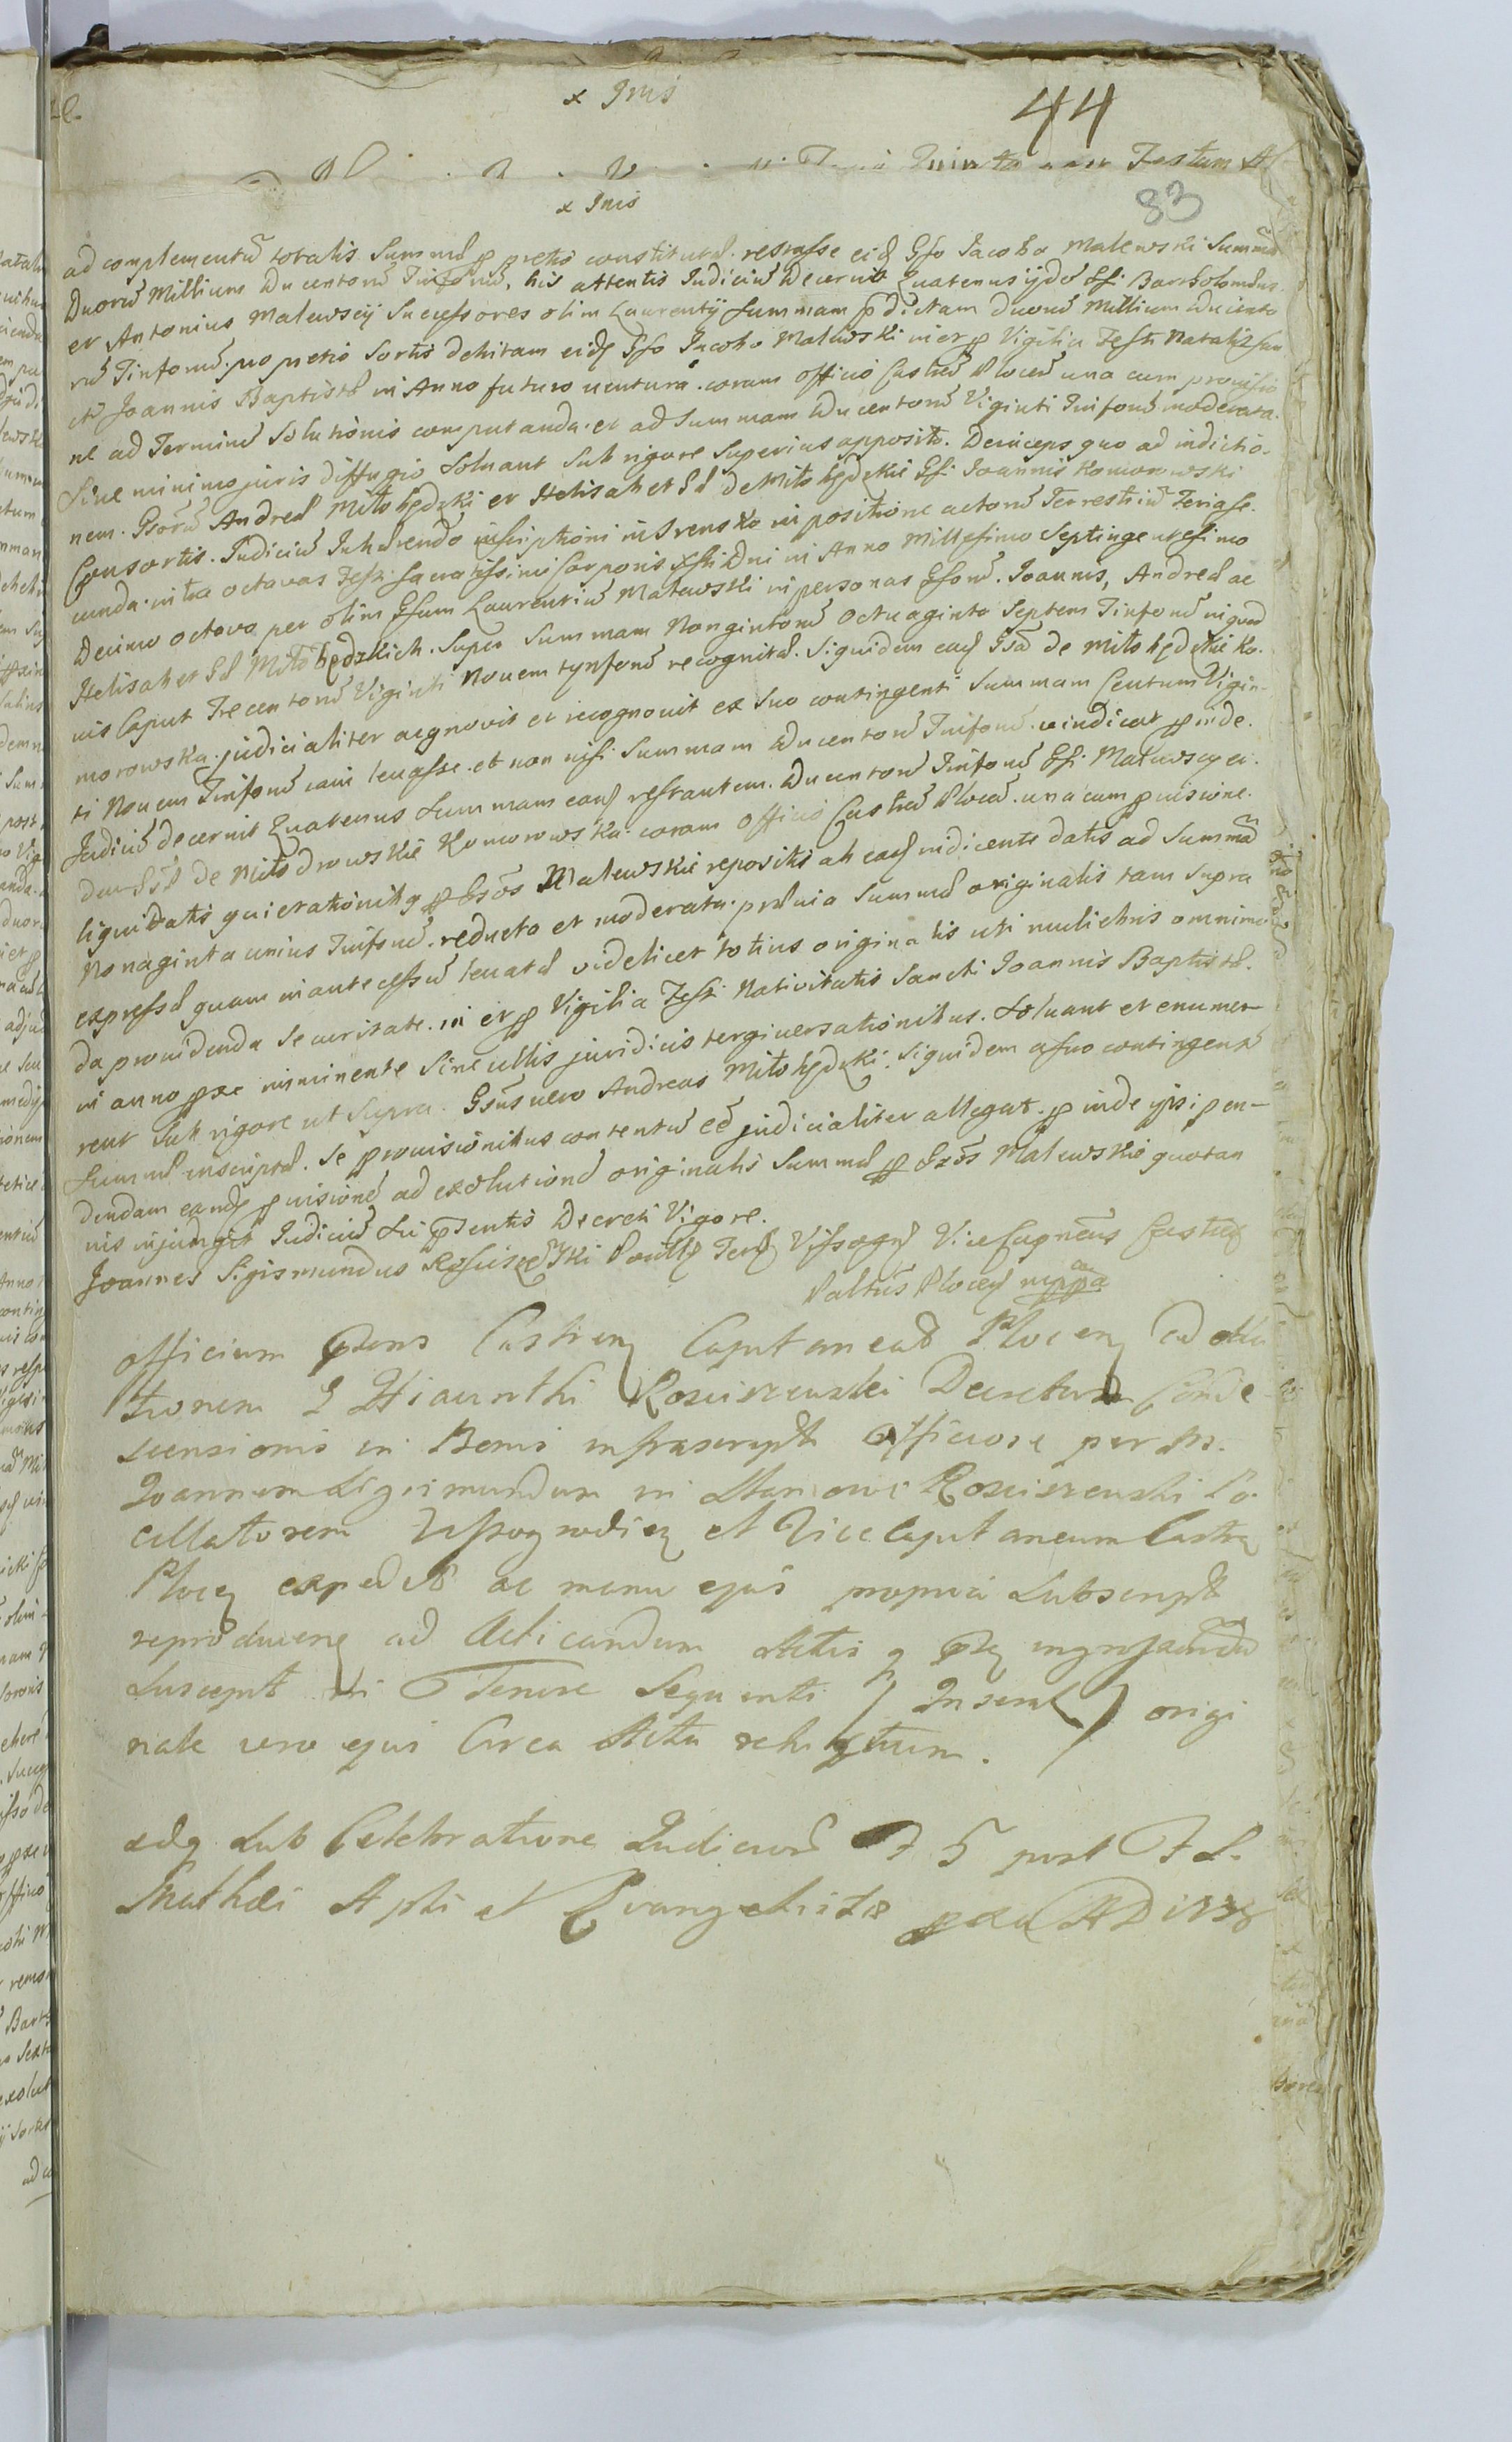 x Inis
44
Quinta post Festum
x Inis
83
ad complementũ totalis Summæ p pretio constitutæ. restasse eid Gso Jacobo Malewski Summã
Duorũ Millium Ducentorũ Tinforũ, his attentis Judiciũ Decernit Quatenus ijdẽ Gsi Bartholomæus
et Antonius Malewscij Successores olim Laurentij Summam pdictam Duorũ Millium Ducento
rũ Tinforũ. pro pretio Sortis debitam eidẽ Gso Jacobo Malewski in et p Vigilia Festi Natalis San
cti Joannis Baptistæ in Anno futuro uentura. coram officio Castrẽ Plocẽ una cum prouisio
ne ad Terminũ Solutionis computanda. et ad Summam Ducentorũ Viginti Tinforũ moderata.
Sine minimo juris diffugio Soluant Sub rigore Superius apposito. Deinceps quo ad indictio-
nem. Gsorũ Andreæ Miłobędzki et Helisabethæ de Miłobędzkie Gsi Joannis Komorowski
Consortis. Judiciũ Inhærendo inscriptioni in Srensko in positione actorũ Terrestriũ Feria se-
cunda. intra octavas Festi Sacratissimi Corporis Xsti Dni in Anno Millesimo Septingentesimo
Decimo octavo per olim Gsum Laurentiũ Malewski in personas Gsorũ. Joannis, Andreæ ac
Helisabethæ Miłobędzkich. Super Summam Nongintorũ octuaginta Septem Tinforũ in quod
uis Caput Trecentorũ Viginti Nouem tynforũ recognitæ. Siquidem eadẽ Gsa de Miłobędzkie Ko-
morowska. judicialiter agnovit et recognouit ex Suo contingenti Summam Centum Vigin-
ti Nouem Tinforũ iam leuasse. et non nisi Summam Ducentorũ Tinforũ. uindicat pinde.
Judiciũ decernit Quatenus Summam eand restantem. Ducentorũ Tinforũ Gsi Malewscy ei-
dem Gsæ de Miłodrowskie Komorowska. coram officio Castrẽ Plocẽ. una cum puisione.
liquidatis quietationibq p Gsos Malewskie repositis ab eadẽ indicente datis ad Summã
Nonaginta unius Tinforũ. reducto et moderata. præuia Summæ originalis tam Supra
expressæ quam in antecessũ leuatæ videlicet totius originalis uti muliebris omnimo-
da prouidenda Securitate. in et p Vigilia Festi Nativitatis Sancti Joannis Baptistæ.
in anno pxe imminente Sine ullis juridicis tergiuersationibus. Soluant et enume-
rent Sub rigore ut Supra. Gsus uero Andreas Miłobędzki. Siquidem a suo contingenti
Summæ inscriptæ. Se prouisionibus contentũ eẽ judicialiter allegat. p inde ipsi pen-
dendam eandẽ puisionẽ ad exolutionẽ originalis Summæ p Gsos Malewskie quotan
nis injungit Judiciũ Sui pntis Decreti Vigore.
Joannes Sigismundus Rosciszewski Vicecapneus Castreũ
Plocẽ mppa
officium Castren Capitaneale Plocen ad
tionem G Hiacinthi Rosciszewski Decretum Conde-
scensionis in Bonis infrascript officiose per M.
Joannem Sigismundum in Rosciszewski Po-
cillatorem Wyssogrodien et Vice Capitaneum Castren
Plocen expedit ac manu ejus propria Subscript
reproducens ad Acticandum Actis q ingrossandũ
Suscepit Tenore Sequenti (Inserat) origi
nale uero ejus Circa Acta relictum.
Sub Celebratione Judiciorũ F 5 post F S.
Mathæi Apli et Evangelistæ pxa AD